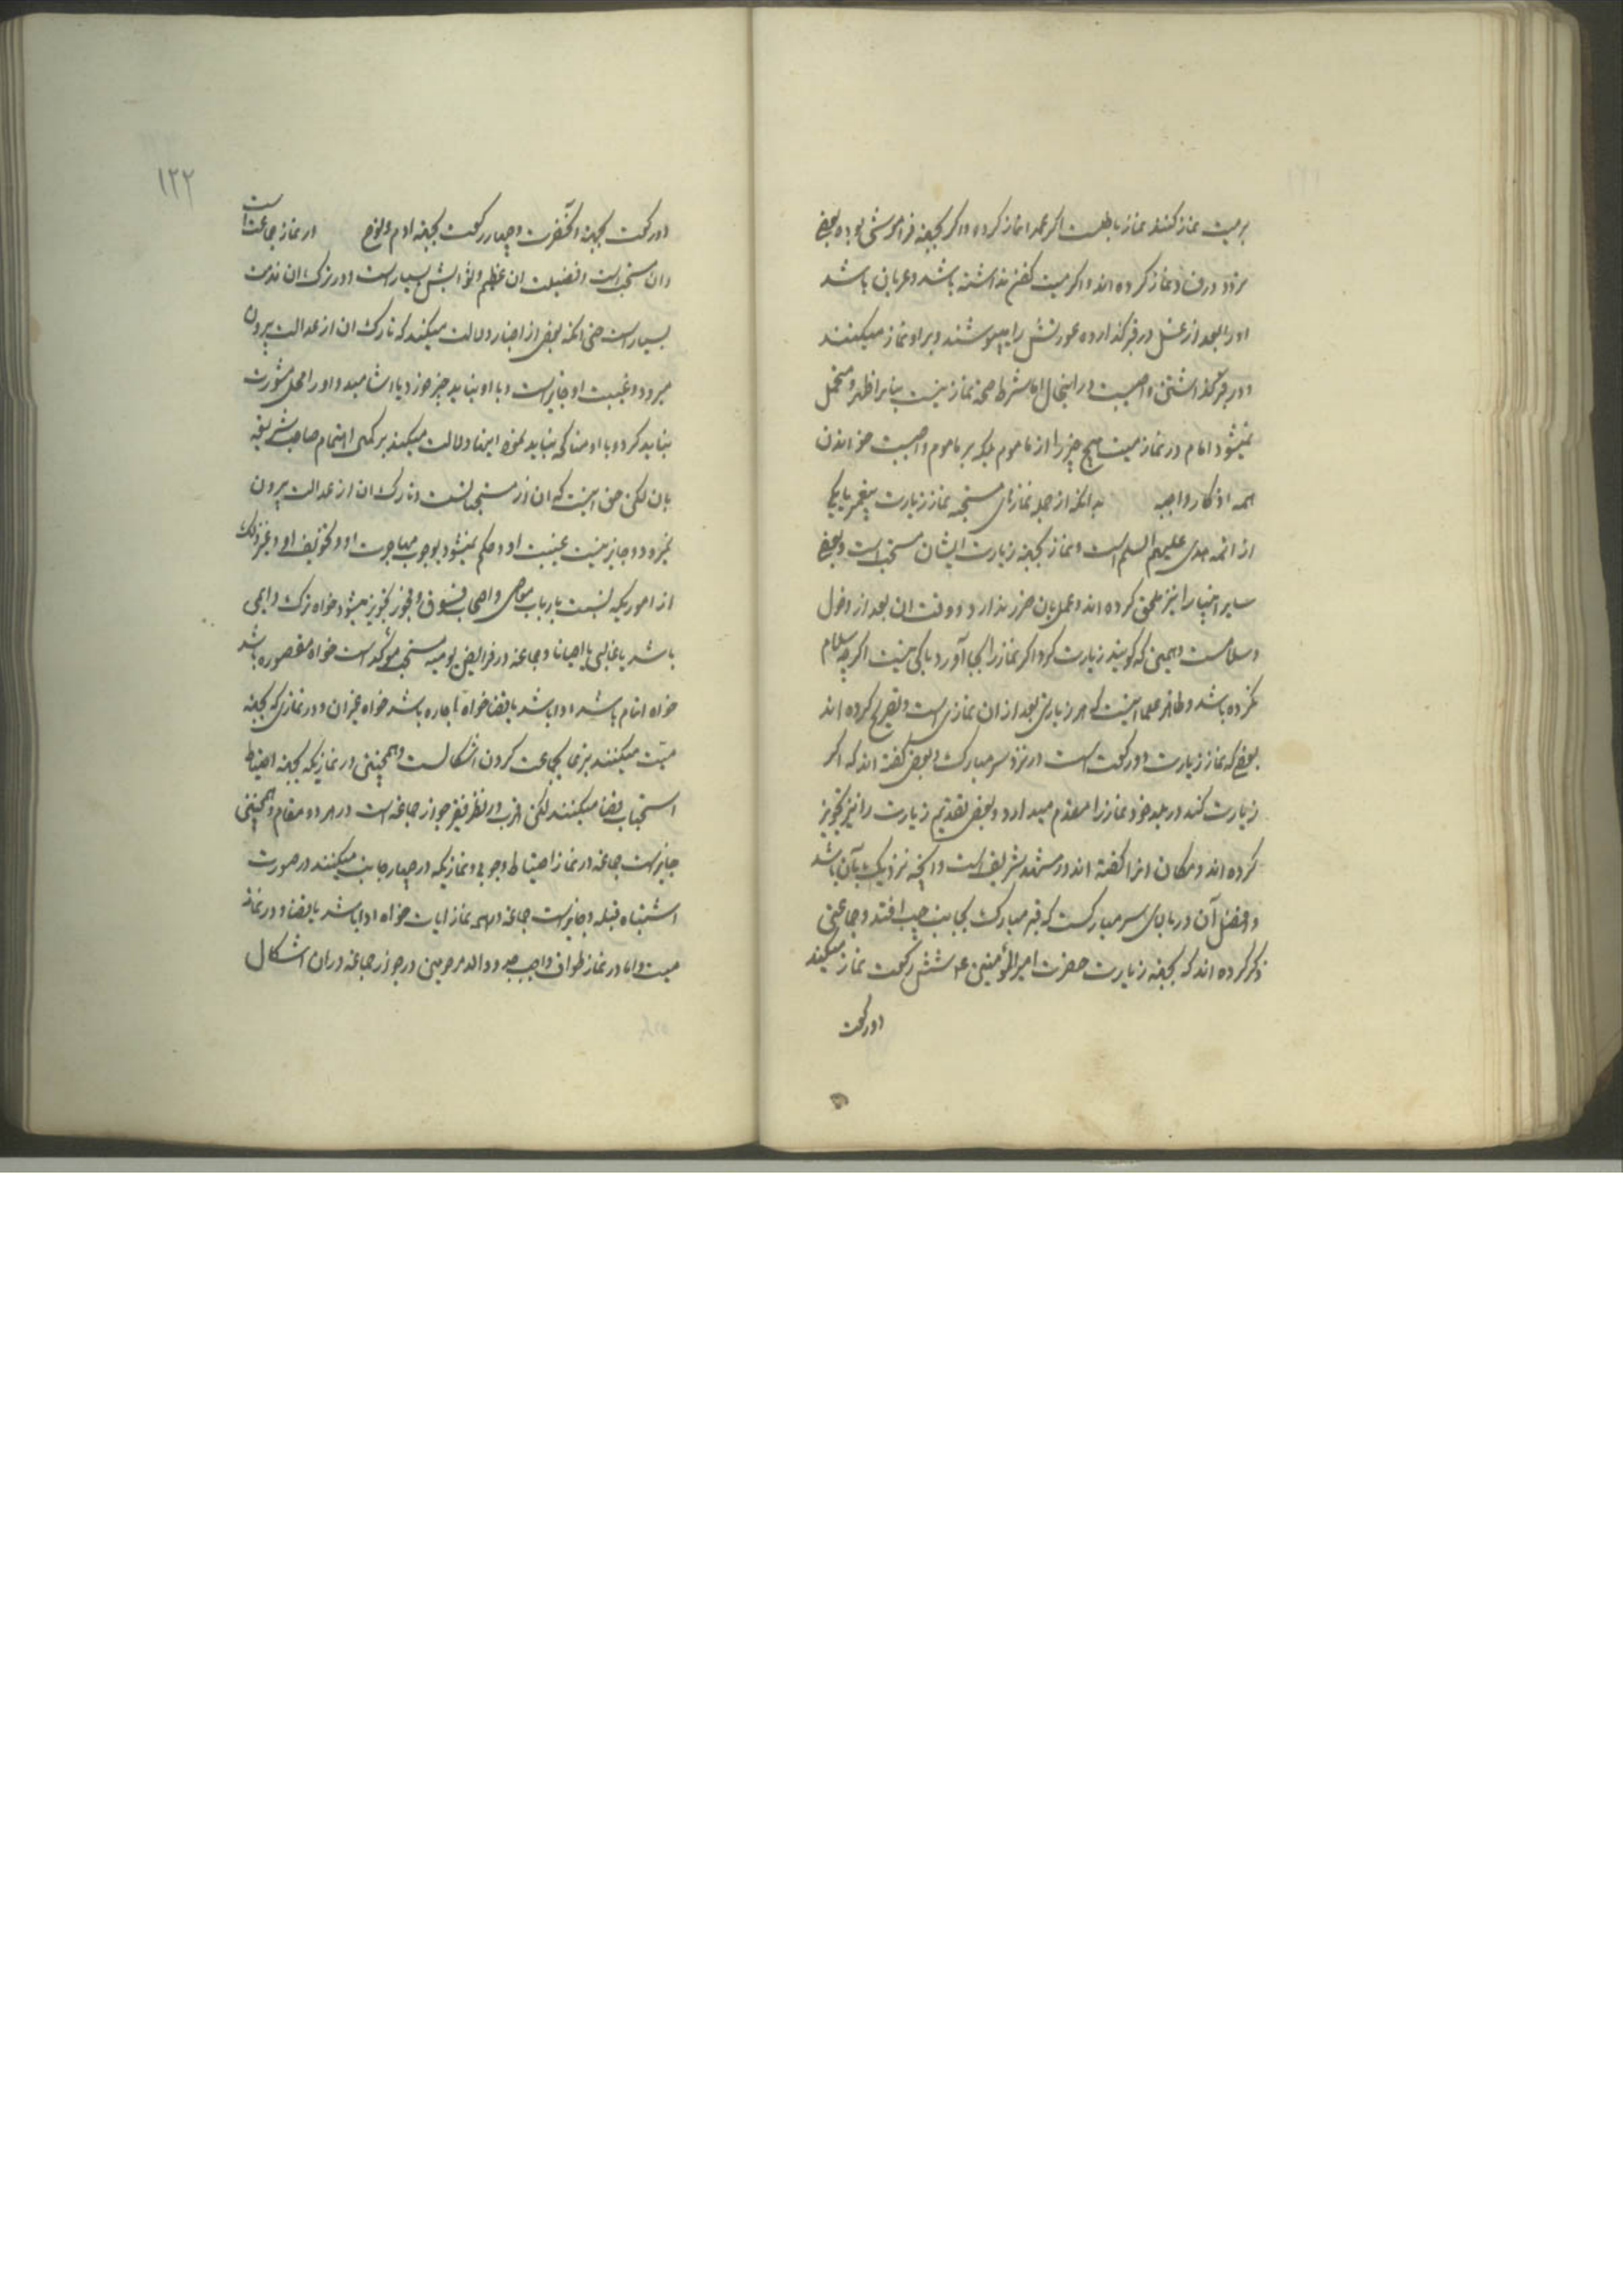 بر میت نماز کنند نماز باطلست اکر عمدا نماز کرده و اکر بجهته فراموشی بوده بعضی
اورا بعد از غسل در قبر کذارده عورتش را میپوشند و بر او نماز میکنند
و در قبر کذاشتن واجبست در اینحال اما شرط صحة نماز نیست بنابر اظهر و متحمل
نمیشود امام در نماز میت هیچ چیز را از ماموم بلکه بر ماموم واجبست خواندن
همه اذکار واجبه بدانکه از جمله نمازهای مستحبه نماز زیارت پیغمبر یا یکی
از ائمه هدی علیهم السلم است و نماز بجهته زیارت ایشان مستحب است و بعضی
سایر انبیا را نیز ملحق کرده اند و عمل بان ضرر ندارد و وقت ان بعد از دخول
و سلامست و همین که کویند زیارت کرد اکر نماز را بجا آورد باکی نیست اکر چه سلام
نکرده باشد و ظاهر علما اینست که هر زیارتی بعد از ان نمازی است و تصریح کرده اند
بعضی که نماز زیارت دو رکعت است در نزد سر مبارک و بعضی کفته اند که اکر
زیارت کند در بلد خود نماز را مقدم میدارد و بعضی تقدیم زیارت را نیز تجویز
کرده اند و مکان انرا کفته اند در مشهد شریف است و انچه نزدیک بآن باشد
و افضل آن در بالای سر مبارکست که قبر مبارک بجانب چپ افتد و جماعتی
ذکر کرده اند که بجهته زیارت حضرت امیر المؤمنین ع شش رکعت نماز میکند
دو رکعت
۱۲۲
دو رکعت بجهته انحضرت و چهار رکعت بجهته ادم و نوح در نماز جماعت است
و ان مستحب است و فضیلت ان عظیم و ثوابش بسیار است و در ترک ان مذمت
بسیار است حتی انکه بعضی از اخبار دلالت میکند که تارک ان از عدالت بیرون
میرود و غیبت او جایز است و با او نباید چیز خورد یا اشامید و او را محل مشورت
نباید کرد و با او مناکحه نباید نمود اینها دلالت میکند بر کمال اهتمام صاحب شریعة
بان لکن حق اینست که ان از مستحباتست و تارک ان از عدالت بیرون
نمیرود و جایز نیست غیبت او و حکم نمیشود بوجوب مهاجرت او و تخویف او و غیر ذلک
از اموریکه نسبت بارباب معاصی و اصحاب فسوق و فجور تجویز میشود خواه ترک دایمی
باشد یا غالبی یا احیانا و جماعة در فرایض یومیه مستحب مؤکد است خواه مقصوره باشد
خواه اتمام باشد ادا باشد یا قضا خواه باجاره باشد خواه غیر ان و در نمازی که بجهته
میت میکنند تبرعا بجماعت کردن اشکالست و همچنین در نمازیکه بجهته احتیاط
استحبابی قضا میکنند لکن اقرب در نظر فقیر جواز جماعة است در هر دو مقام و همچنین
جایز است جماعة در نماز احتیاط وجوبی و نمازیکه در چهار جانب میکنند در صورت
اشتباه قبله و جایز است جماعة در همه نماز ایات خواه ادا باشد یا قضا و در نماز
میت و اما در نماز طواف واجب والد مرحومین در جواز جماعة در ان اشکال